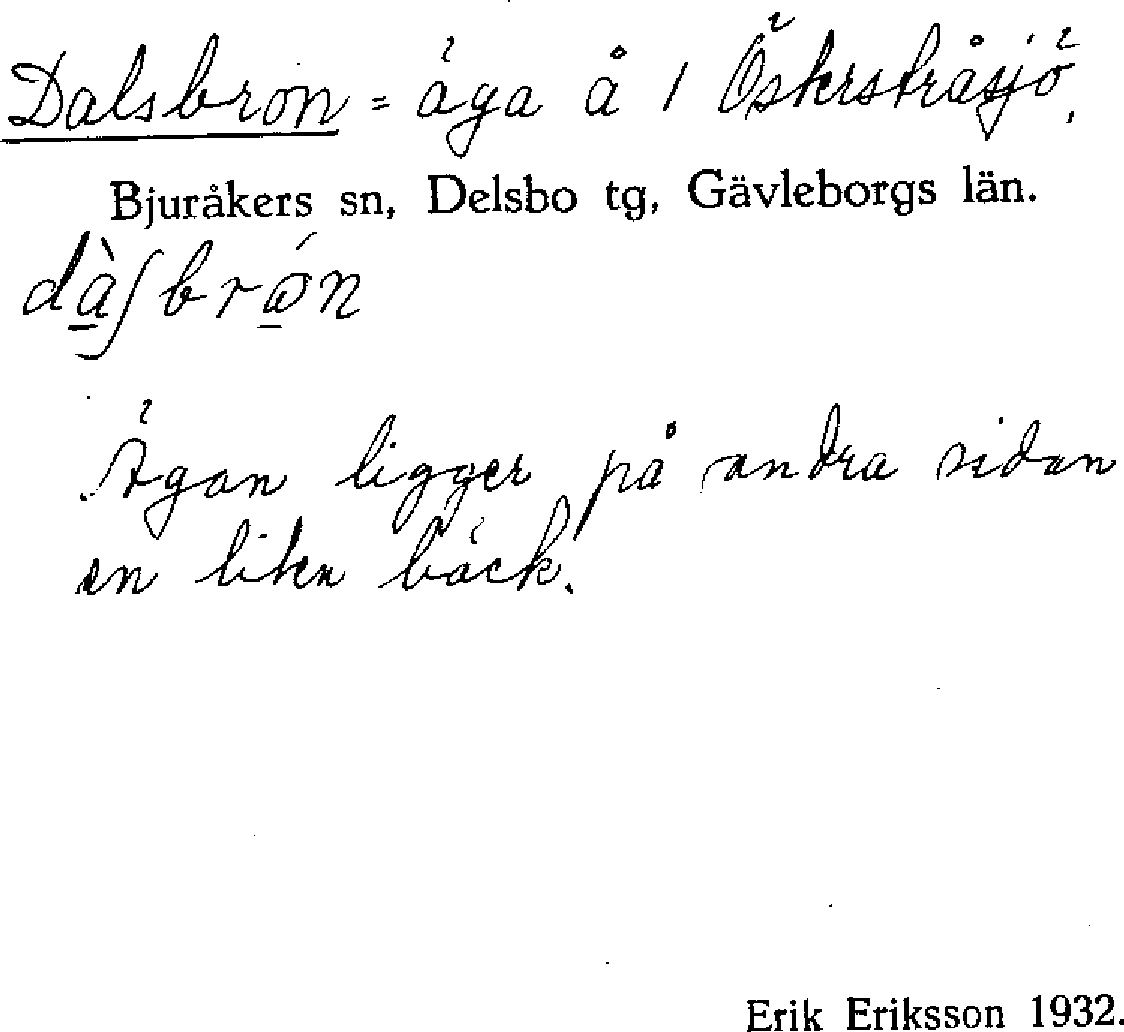 Dalsbron = äga å 1 Österstråsjö.
Bjuråkers sn, Delsbo tg, Gävleborgs län.
dàʃbrǿn
Ägan ligger på andra sidan
en liten bäck.
Erik Eriksson 1932.